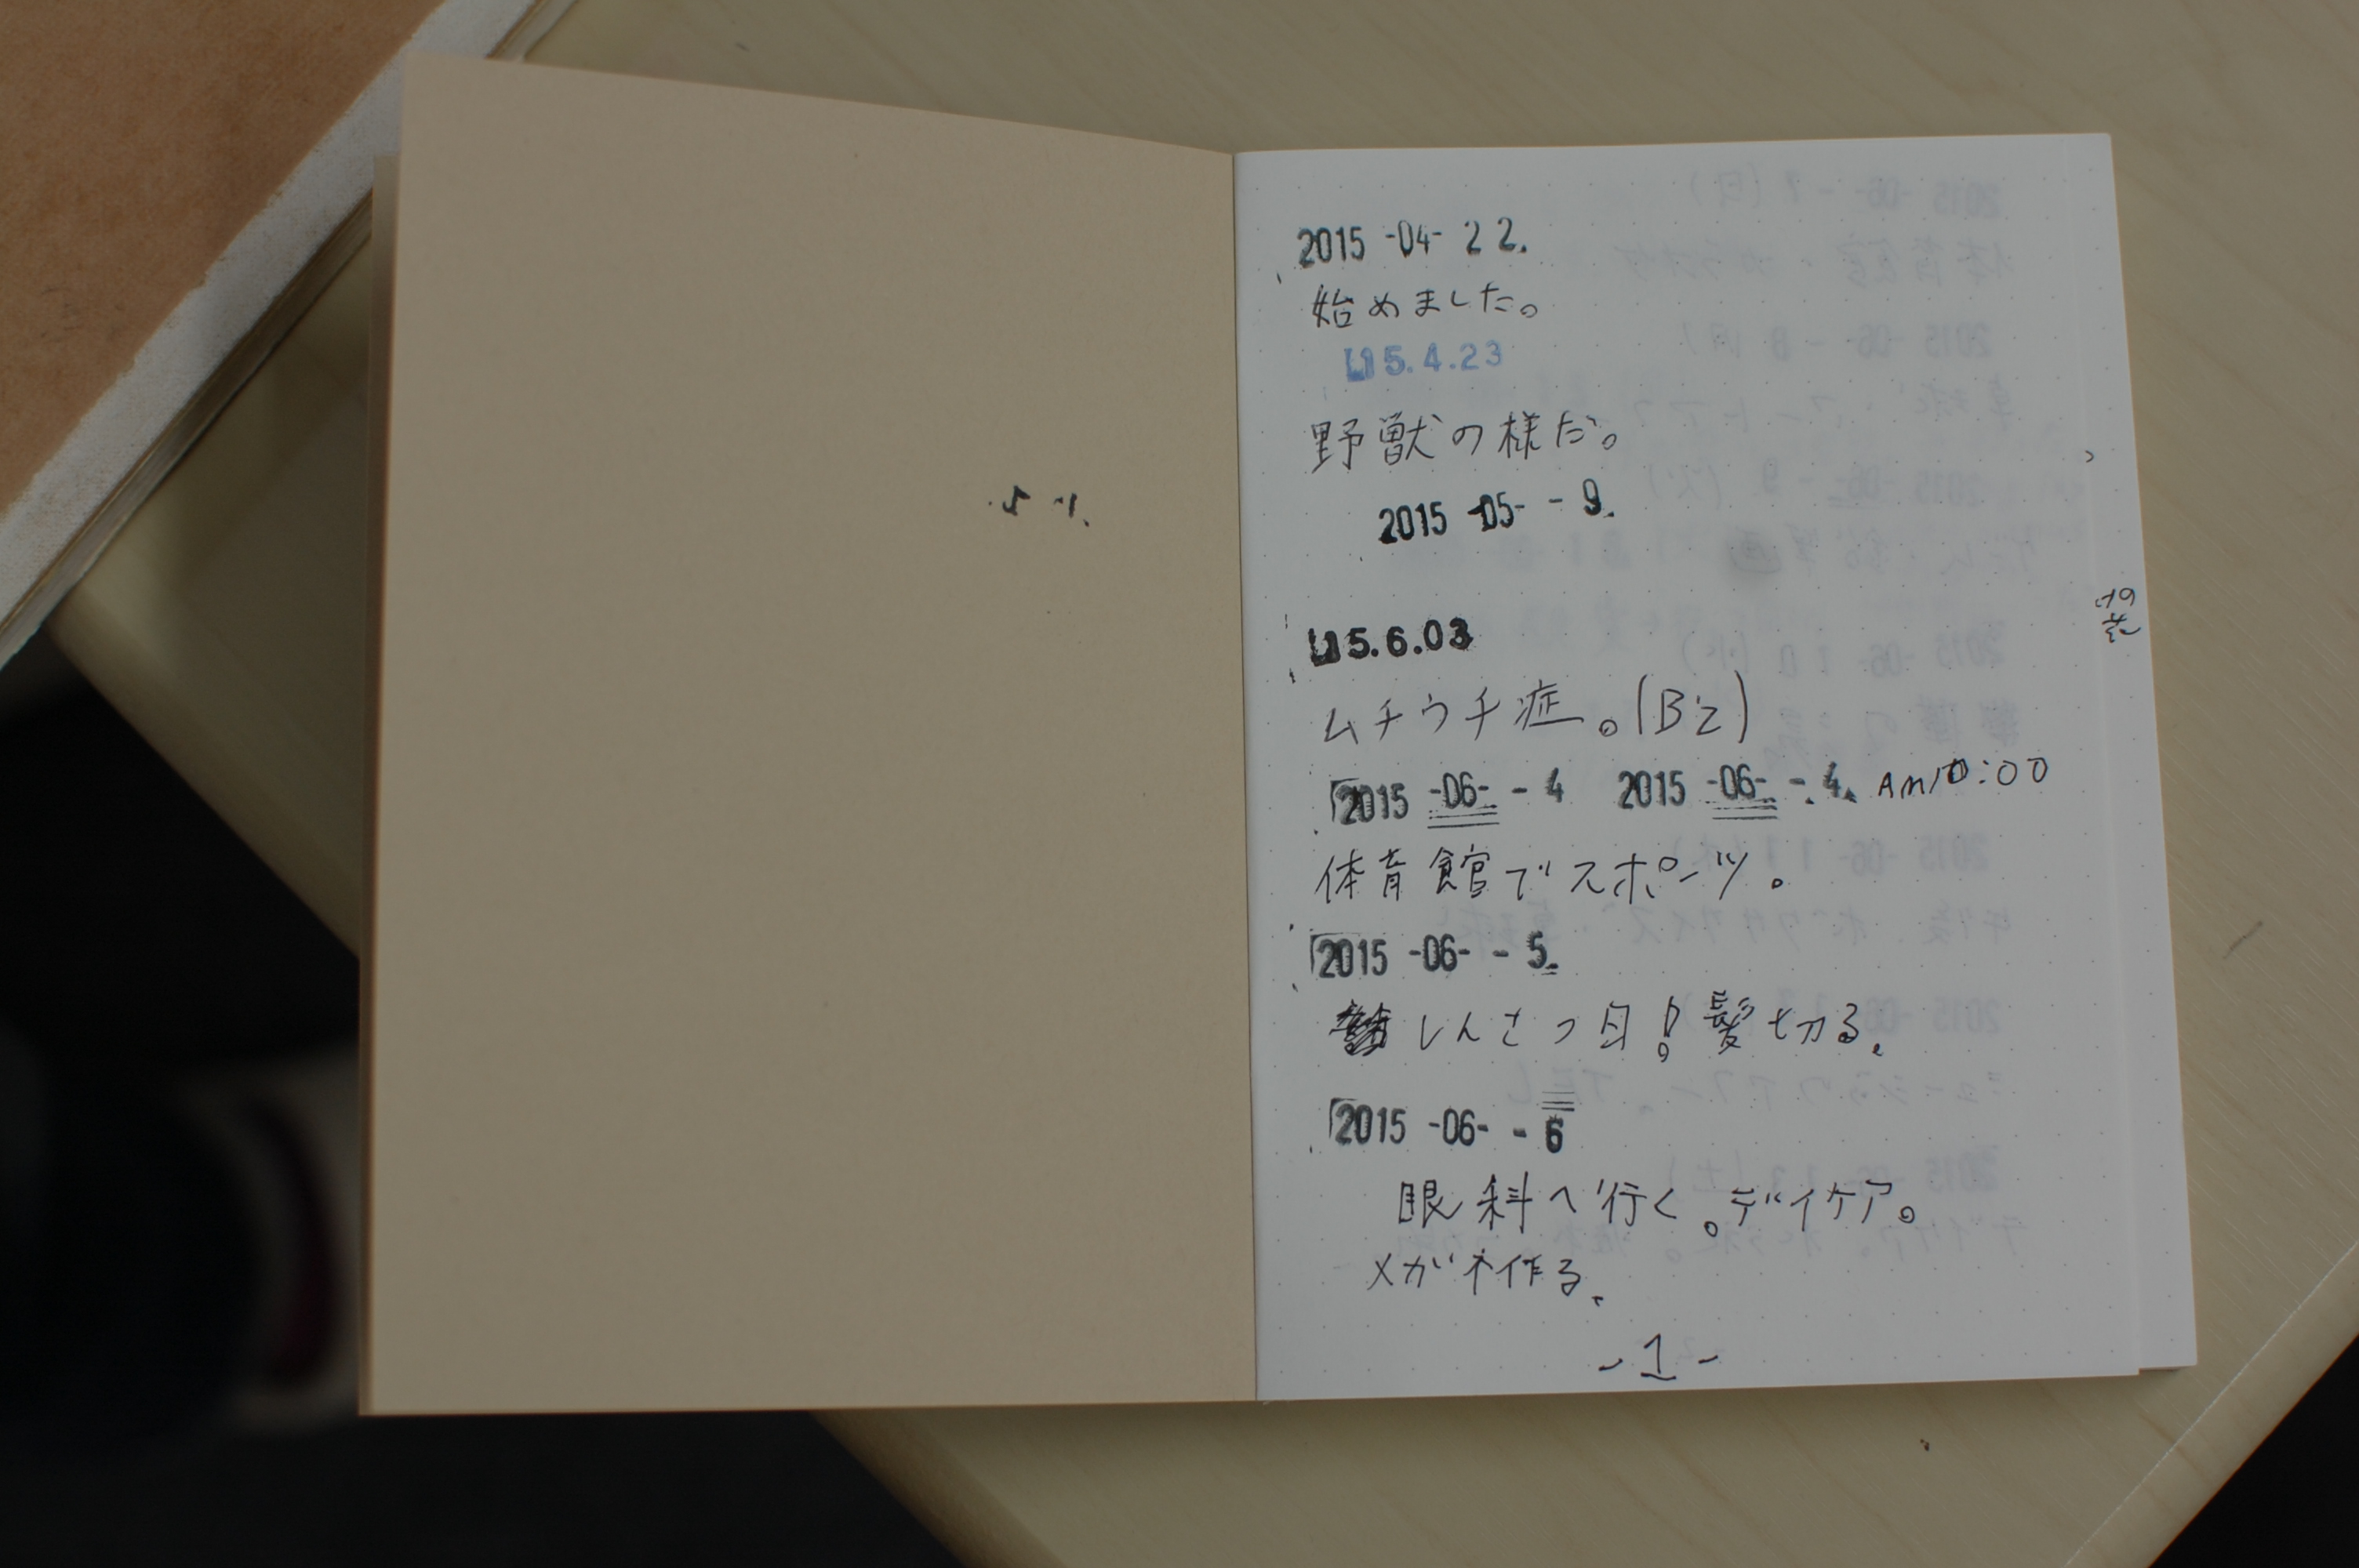 2015 -04- 22.
始めました。
15.4.23
野獣の様だ。
2015 -05- - 9.
15.6.03
ムチウチ症。(B'z)
2015 -06- - 4 2015 -06- - 4. AM10:00
体育館でスポーツ。
2015 -06- - 5.
しんさつ日!髪切る。
2015 -06- - 6
眼科へ行く。デイケア。
メガネ作る。
-1-